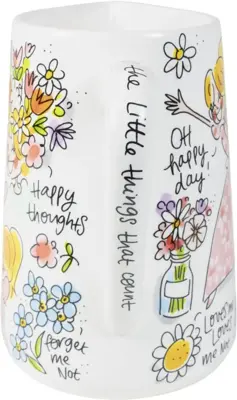 Happy
thoughts
forget
me Not
the Little things that count
OH
happy,
day
Loves me
Loves
me Not